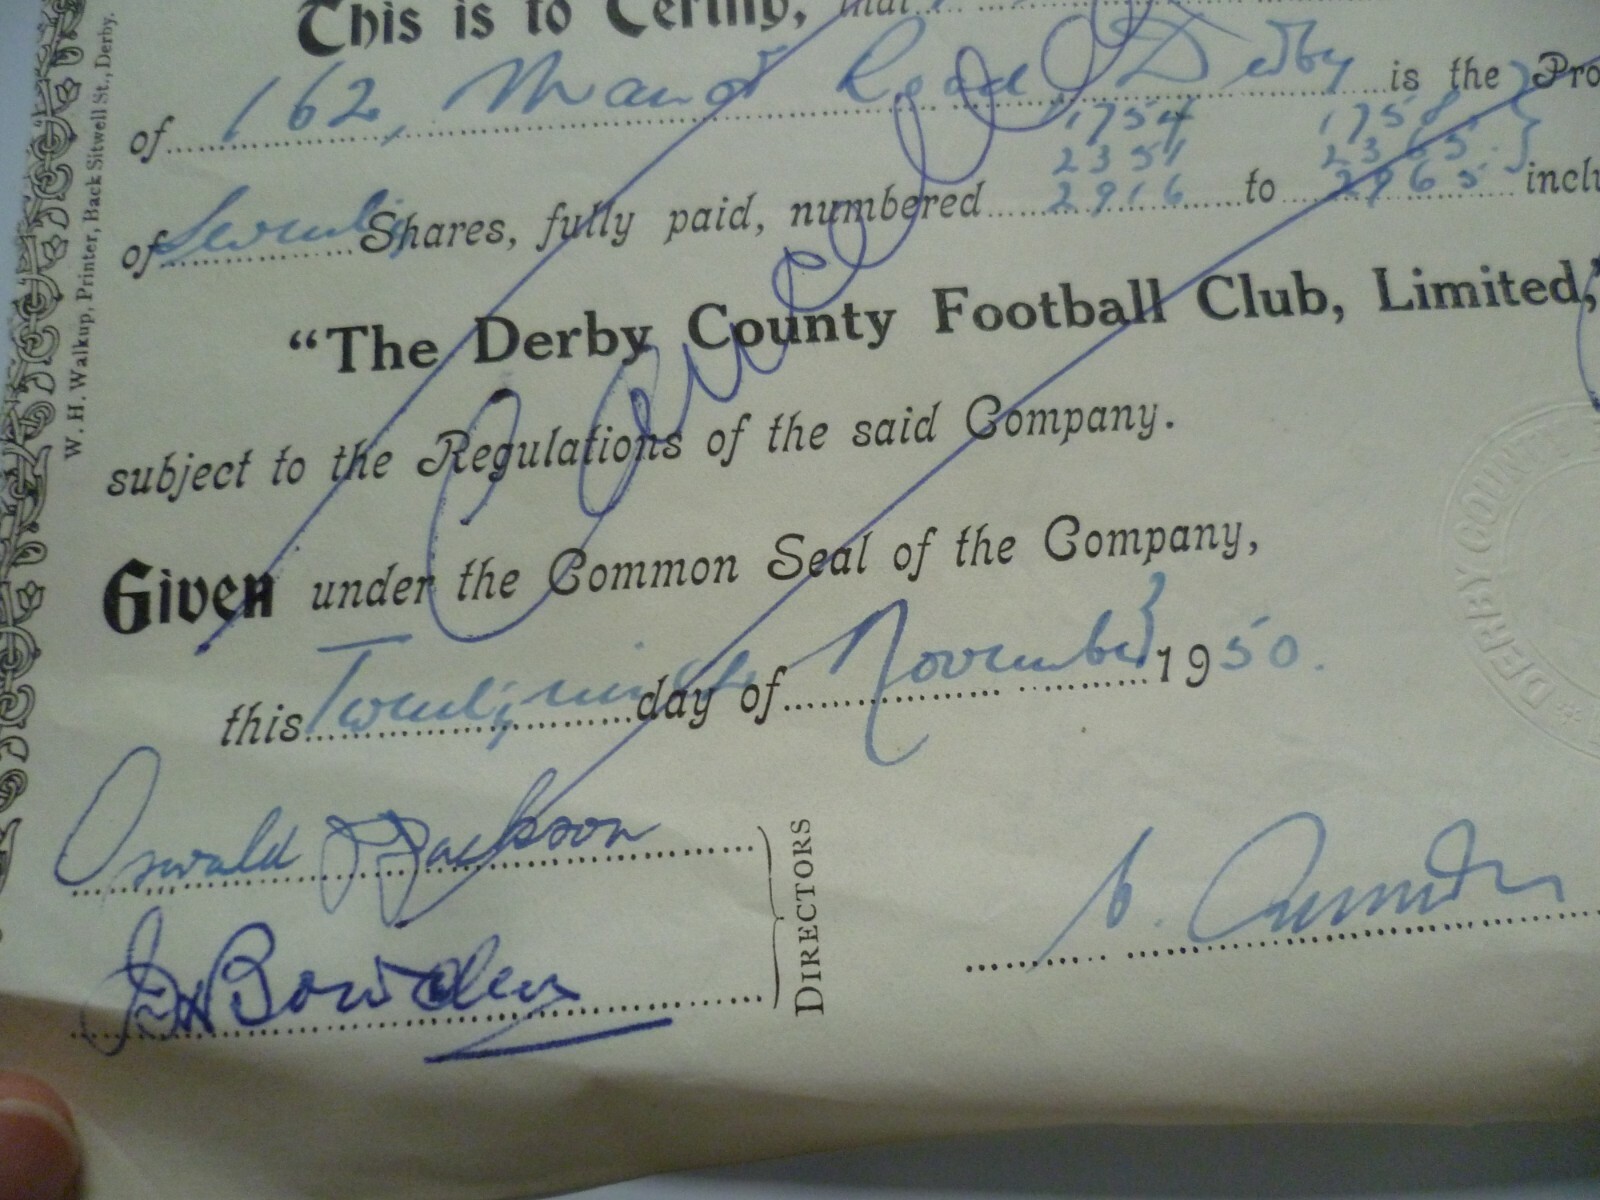 This is to Certify, that
of 162, Manor Road Derby is the Pro
1754 1758
2351 2365
of Seventy Shares, fully paid, numbered 2916 to 2965 inclu
"The Derby County Football Club, Limited,"
subject to the Regulations of the said Company.
Cancelled
Given under the Common Seal of the Company,
this Twenty ninth day of November 1950.
Oswald J Jackson
Bowden
DIRECTORS
W. H. Walkup, Printer, Back Sitwell St., Derby.
DERBY COUNTY